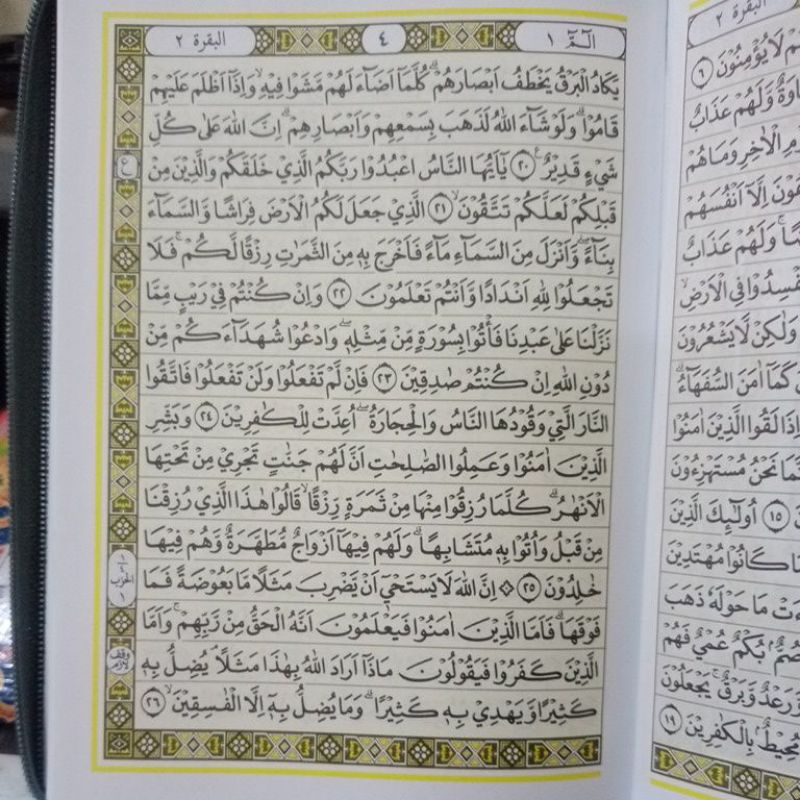 الۤمّۤ ١
٤
البقرة ٢
يَكَادُ الْبَرْقُ يَخْطَفُ اَبْصَارَهُمْ ۗ كُلَّمَآ اَضَاۤءَ لَهُمْ مَّشَوْا فِيْهِ ۙ وَاِذَآ اَظْلَمَ عَلَيْهِمْ
قَامُوْا ۗ وَلَوْ شَاۤءَ اللّٰهُ لَذَهَبَ بِسَمْعِهِمْ وَاَبْصَارِهِمْ ۗ اِنَّ اللّٰهَ عَلٰى كُلِّ
شَيْءٍ قَدِيْرٌ ࣖ ٢٠ يٰٓاَيُّهَا النَّاسُ اعْبُدُوْا رَبَّكُمُ الَّذِيْ خَلَقَكُمْ وَالَّذِيْنَ مِنْ
قَبْلِكُمْ لَعَلَّكُمْ تَتَّقُوْنَ ۙ ٢١ الَّذِيْ جَعَلَ لَكُمُ الْاَرْضَ فِرَاشًا وَّالسَّمَاۤءَ
بِنَاۤءً ۖ وَّاَنْزَلَ مِنَ السَّمَاۤءِ مَاۤءً فَاَخْرَجَ بِهٖ مِنَ الثَّمَرٰتِ رِزْقًا لَّكُمْ ۚ فَلَا
تَجْعَلُوْا لِلّٰهِ اَنْدَادًا وَّاَنْتُمْ تَعْلَمُوْنَ ٢٢ وَاِنْ كُنْتُمْ فِيْ رَيْبٍ مِّمَّا
نَزَّلْنَا عَلٰى عَبْدِنَا فَأْتُوْا بِسُوْرَةٍ مِّنْ مِّثْلِهٖ ۖ وَادْعُوْا شُهَدَاۤءَكُمْ مِّنْ
دُوْنِ اللّٰهِ اِنْ كُنْتُمْ صٰدِقِيْنَ ٢٣ فَاِنْ لَّمْ تَفْعَلُوْا وَلَنْ تَفْعَلُوْا فَاتَّقُوا
النَّارَ الَّتِيْ وَقُوْدُهَا النَّاسُ وَالْحِجَارَةُ ۖ اُعِدَّتْ لِلْكٰفِرِيْنَ ٢٤ وَبَشِّرِ
الَّذِيْنَ اٰمَنُوْا وَعَمِلُوا الصّٰلِحٰتِ اَنَّ لَهُمْ جَنّٰتٍ تَجْرِيْ مِنْ تَحْتِهَا
الْاَنْهٰرُ ۗ كُلَّمَا رُزِقُوْا مِنْهَا مِنْ ثَمَرَةٍ رِّزْقًا ۙ قَالُوْا هٰذَا الَّذِيْ رُزِقْنَا
مِنْ قَبْلُ وَاُتُوْا بِهٖ مُتَشَابِهًا ۗ وَلَهُمْ فِيْهَآ اَزْوَاجٌ مُّطَهَّرَةٌ وَّهُمْ فِيْهَا
خٰلِدُوْنَ ٢٥ ۞ اِنَّ اللّٰهَ لَا يَسْتَحْيٖٓ اَنْ يَّضْرِبَ مَثَلًا مَّا بَعُوْضَةً فَمَا
فَوْقَهَا ۗ فَاَمَّا الَّذِيْنَ اٰمَنُوْا فَيَعْلَمُوْنَ اَنَّهُ الْحَقُّ مِنْ رَّبِّهِمْ ۚ وَاَمَّا
الَّذِيْنَ كَفَرُوْا فَيَقُوْلُوْنَ مَاذَآ اَرَادَ اللّٰهُ بِهٰذَا مَثَلًا ۘ يُضِلُّ بِهٖ
كَثِيْرًا وَّيَهْدِيْ بِهٖ كَثِيْرًا ۗ وَمَا يُضِلُّ بِهٖٓ اِلَّا الْفٰسِقِيْنَ ۙ ٢٦
ع
١/٤
الحزب
١
وقف
لازم
البقرة ٢
لَا يُؤْمِنُوْنَ ٦
وَّلَهُمْ عَذَابٌ
الْاٰخِرِ وَمَا هُمْ
اِلَّآ اَنْفُسَهُمْ
وَلَهُمْ عَذَابٌ
فِى الْاَرْضِ
وَلٰكِنْ لَّا يَشْعُرُوْنَ
كَمَآ اٰمَنَ السُّفَهَاۤءُ
لَقُوا الَّذِيْنَ اٰمَنُوْا
نَحْنُ مُسْتَهْزِءُوْنَ
١٥ اُولٰۤىِٕكَ الَّذِيْنَ
كَانُوْا مُهْتَدِيْنَ
مَا حَوْلَهٗ ذَهَبَ
بُكْمٌ عُمْيٌ فَهُمْ
وَّرَعْدٌ وَّبَرْقٌ ۚ يَجْعَلُوْنَ
بِالْكٰفِرِيْنَ ١٩